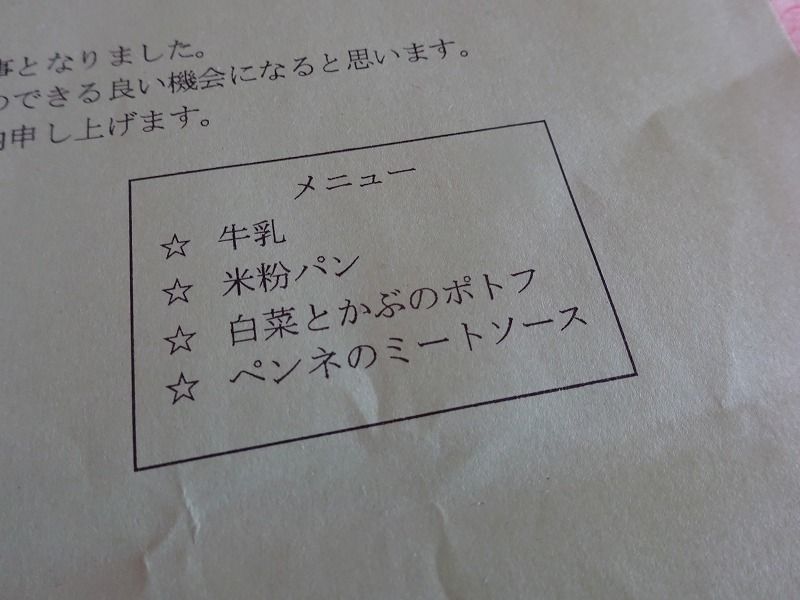 となりました。
できる良い機会になると思います。
申し上げます。
メニュー
☆ 牛乳
☆ 米粉パン
☆ 白菜とかぶのポトフ
☆ ペンネのミートソース